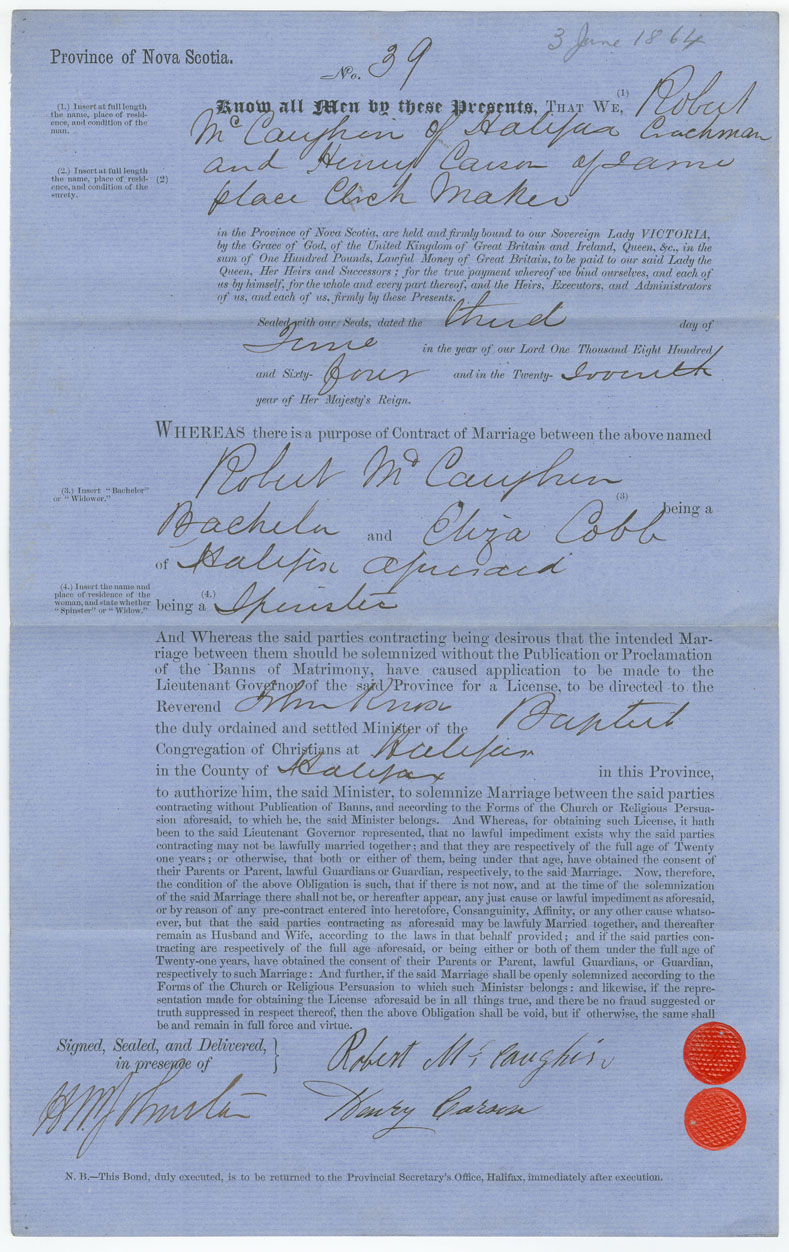 3 June 1864
Province of Nova Scotia.
No. 39
(1.) Insert at full length
the name, place of resid-
ence, and condition of the
man.
Know all Men by these Presents, THAT WE, (1) Robert
McCaughin of Halifax Coachman
(2.) Insert at full length
the name, place of resid-
ence, and condition of the
surety.
(2) and Henry Carson of same
place Clock Maker
in the Province of Nova Scotia, are held and firmly bound to our Sovereign Lady VICTORIA,
by the Grace of God, of the United Kingdom of Great Britain and Ireland, Queen, &c., in the
sum of One Hundred Pounds, Lawful Money of Great Britain, to be paid to our said Lady the
Queen, Her Heirs and Successors; for the true payment whereof we bind ourselves, and each of
us by himself, for the whole and every part thereof, and the Heirs, Executors, and Administrators
of us, and each of us, firmly by these Presents.
Sealed with our Seals, dated the third day of
June in the year of our Lord One Thousand Eight Hundred
and Sixty- four and in the Twenty- seventh
year of Her Majesty's Reign.
WHEREAS there is a purpose of Contract of Marriage between the above named
Robert McCaughin
(3.) Insert "Bachelor"
or "Widower."
(3) being a
Bachelor and Eliza Cobb
of Halifax aforesaid
(4.) Insert the name and
place of residence of the
woman, and state whether
"Spinster" or "Widow."
being a (4.) Spinster
And Whereas the said parties contracting being desirous that the intended Mar-
riage between them should be solemnized without the Publication or Proclamation
of the Banns of Matrimony, have caused application to be made to the
Lieutenant Governor of the said Province for a License, to be directed to the
Reverend John Knox
the duly ordained and settled Minister of the Baptist
Congregation of Christians at Halifax
in the County of Halifax in this Province,
to authorize him, the said Minister, to solemnize Marriage between the said parties
contracting without Publication of Banns, and according to the Forms of the Church or Religious Persua-
sion aforesaid, to which he, the said Minister belongs. And Whereas, for obtaining such License, it hath
been to the said Lieutenant Governor represented, that no lawful impediment exists why the said parties
contracting may not be lawfully married together; and that they are respectively of the full age of Twenty
one years; or otherwise, that both or either of them, being under that age, have obtained the consent of
their Parents or Parent, lawful Guardians or Guardian, respectively, to the said Marriage. Now, therefore,
the condition of the above Obligation is such, that if there is not now, and at the time of the solemnization
of the said Marriage there shall not be, or hereafter appear, any just cause or lawful impediment as aforesaid,
or by reason of any pre-contract entered into heretofore, Consanguinity, Affinity, or any other cause whatso-
ever, but that the said parties contracting as aforesaid may be lawfuly Married together, and thereafter
remain as Husband and Wife, according to the laws in that behalf provided; and if the said parties con-
tracting are respectively of the full age aforesaid, or being either or both of them under the full age of
Twenty-one years, have obtained the consent of their Parents or Parent, lawful Guardians, or Guardian,
respectively to such Marriage: And further, if the said Marriage shall be openly solemnized according to the
Forms of the Church or Religious Persuasion to which such Ministsr belongs: and likewise, if the repre-
sentation made for obtaining the License aforesaid be in all things true, and there be no fraud suggested or
truth suppressed in respect thereof, then the above Obligation shall be void, but if otherwise, the same shall
be and remain in full force and virtue.
Signed, Sealed, and Delivered, }
in presence of
Robert McCaughin
H W Johnston
Henry Carson
N. B.—This Bond, duly executed, is to be returned to the Provincial Secretary's Office, Halifax, immediately after execution.